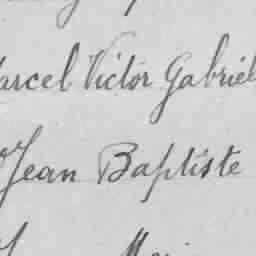 Marcel Victor Gabriel
Jean Baptiste